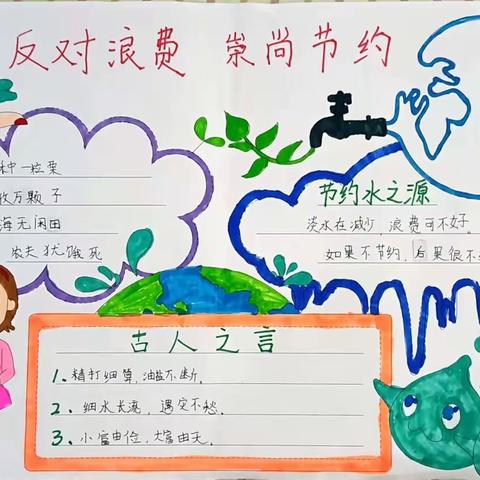 反对浪费 崇尚节约
种一粒粟
收万颗子
海无闲田
农夫犹饿死
节约水之源
淡水在减少，浪费可不好。
如果不节约，后果很不
古人之言
1、精打细算，油盐不断。
2、细水长流，遇灾不愁。
3、小富由俭，大富由天。